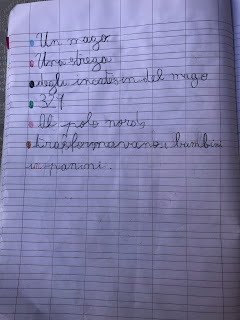 Un mago
Una strega
degli incatesin del mago
327
Al polo nord
traiformavano i bambini
in panini.